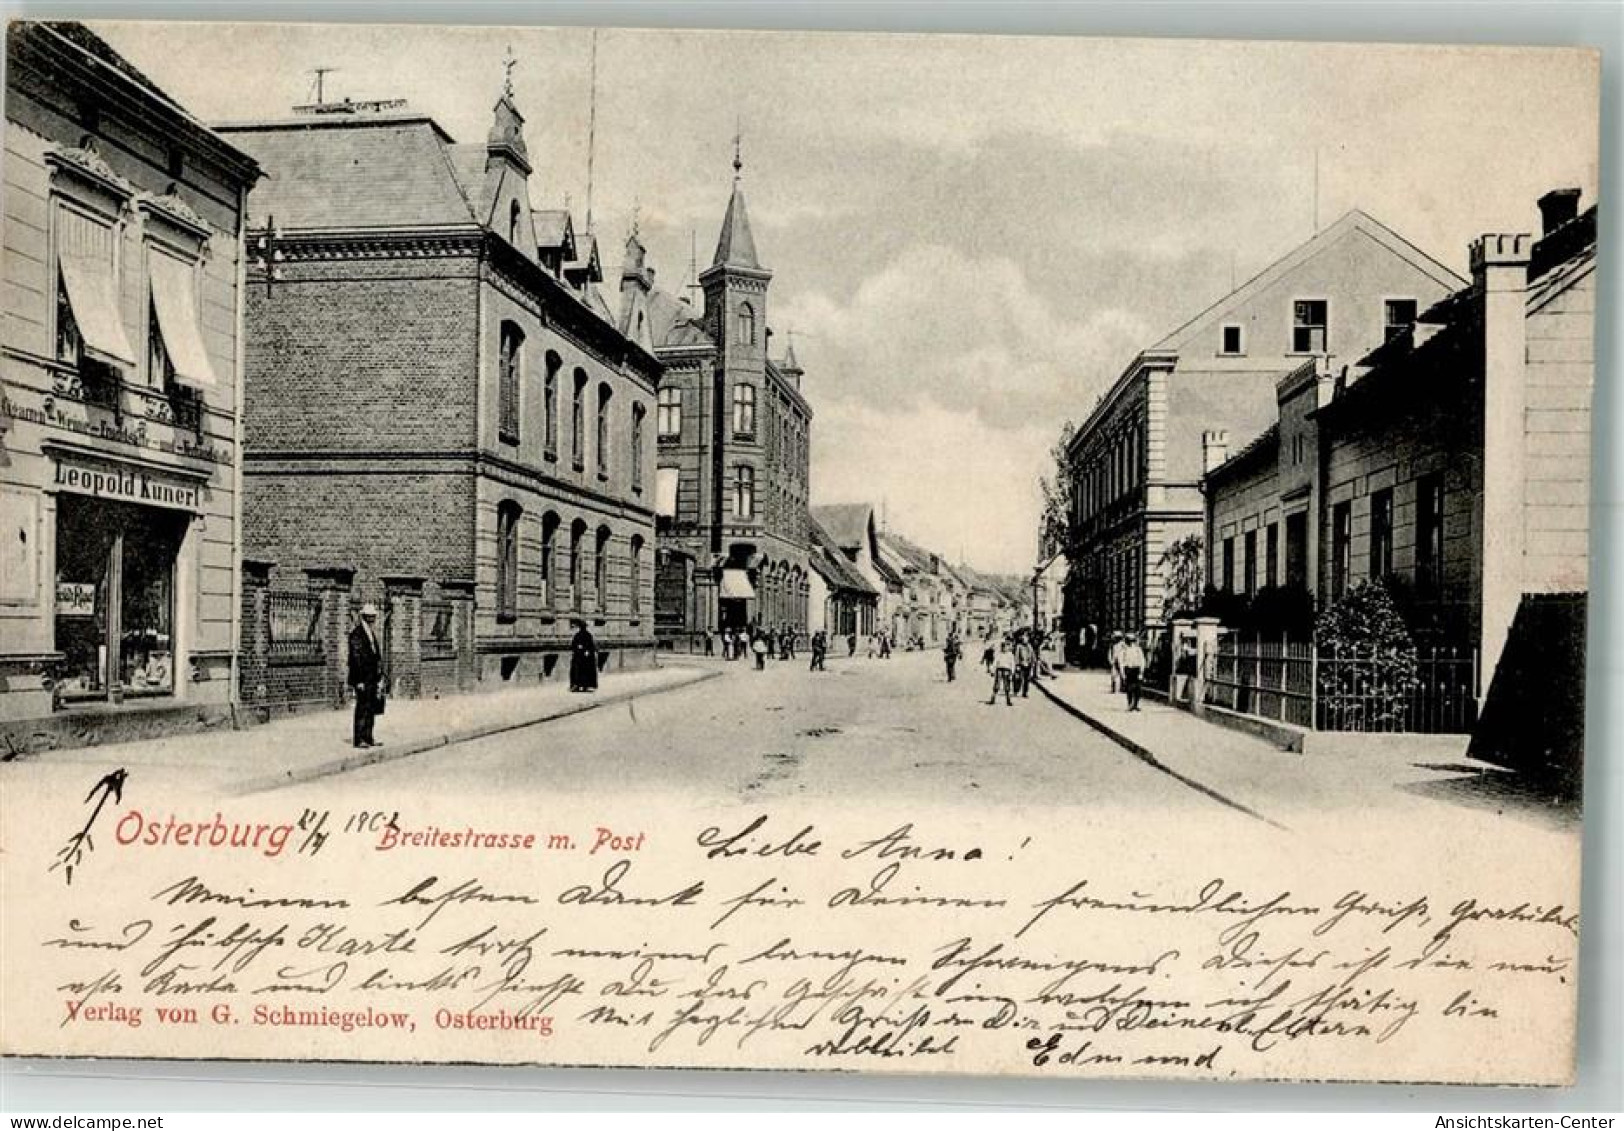 Cigarren- Weine- Frucht
Leopold Kunert
Osterburg 21/4 1902 Breitestrasse m. Post Liebe Anna!
Meinen besten Dank für Deinen freundlichen Gruß, Gratulat.
und hübsche Karte trotz meines langen Schweigens. Dieses ist die neu-
este Karte und links siehst Du das Geschäft in welchem ich thätig bin
Verlag von G. Schmiegelow, Osterburg Mit herzlichen Gruß an Dir und Deinen l. Eltern
verbleibet Edmund
www.delcampe.net
Ansichtskarten-Center